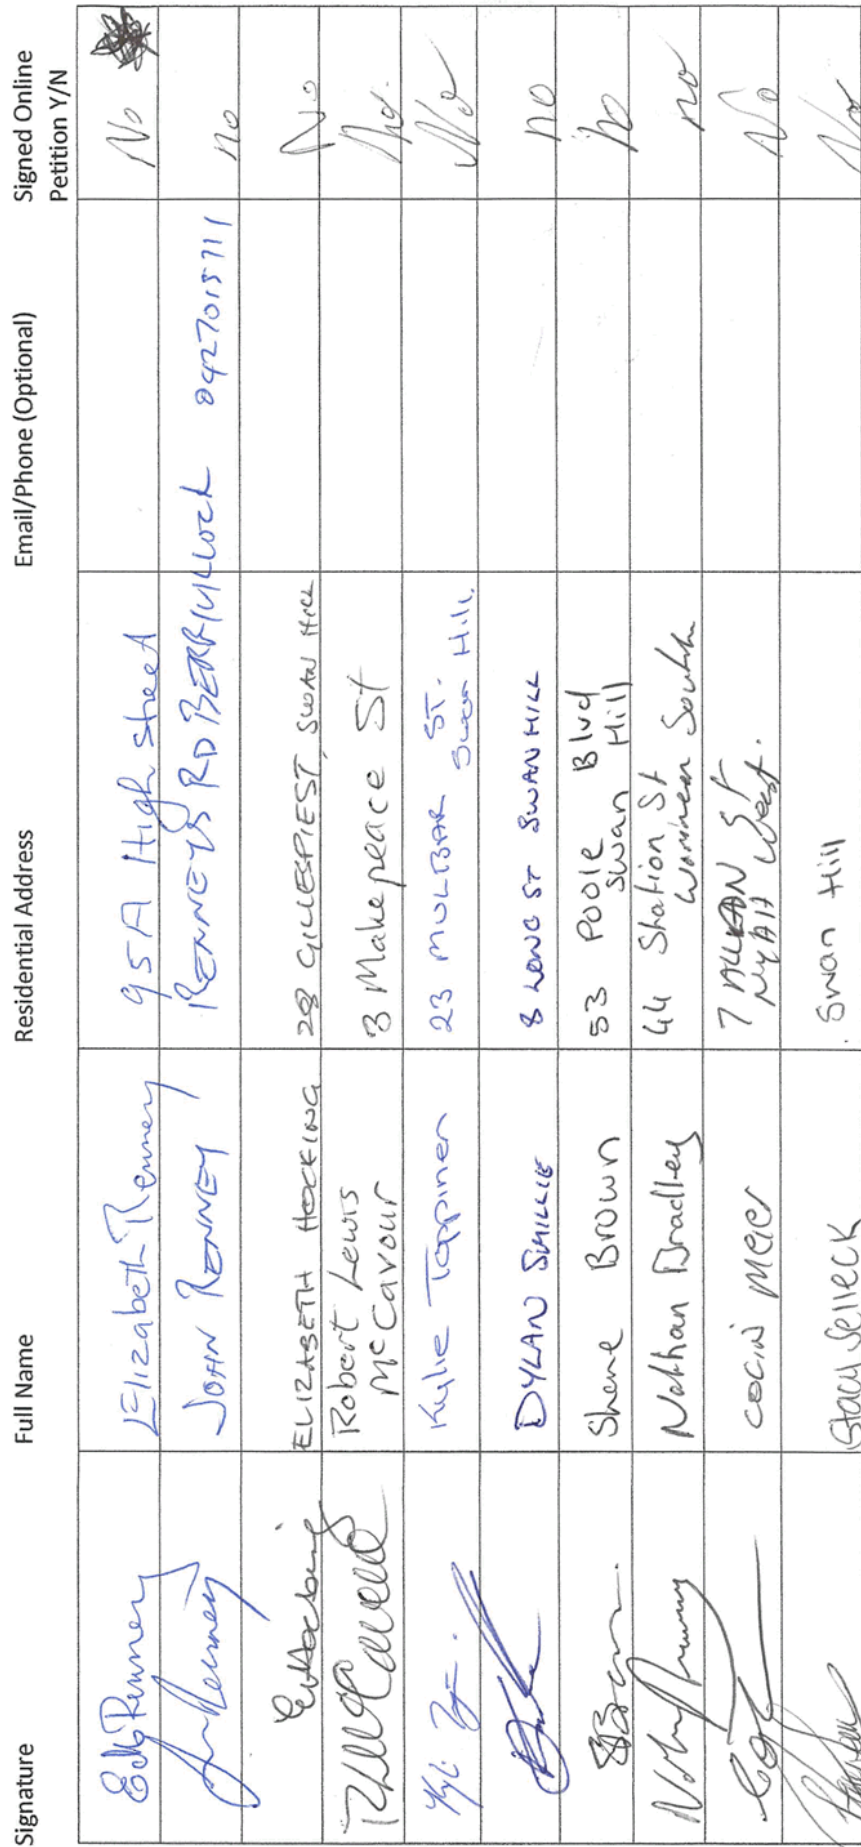 Signature Full Name Residential Address Email/Phone (Optional) Signed Online Petition Y/N
Elizabeth Renney 95A High Street No
John Renney JOHN RENNEY RENNEYS RD BERRIWILLOCK 0427015711 no
EHocking ELIZABETH HOCKING 28 GILLESPIE ST, SWAN HILL No
Robert Lewis McCavour 3 Makepeace St No.
Kylie Toppinen 23 MULTBAR ST. Swan Hill. No
DYLAN SMILLIE 8 LONG ST SWAN HILL no
SBrown. Shane Brown 53 Poole Blvd Swan Hill no
Nathan Bradley 44 Station St South no
COLIN Meier 7 ST NyAH West. No
Stacy Selleck Swan Hill No